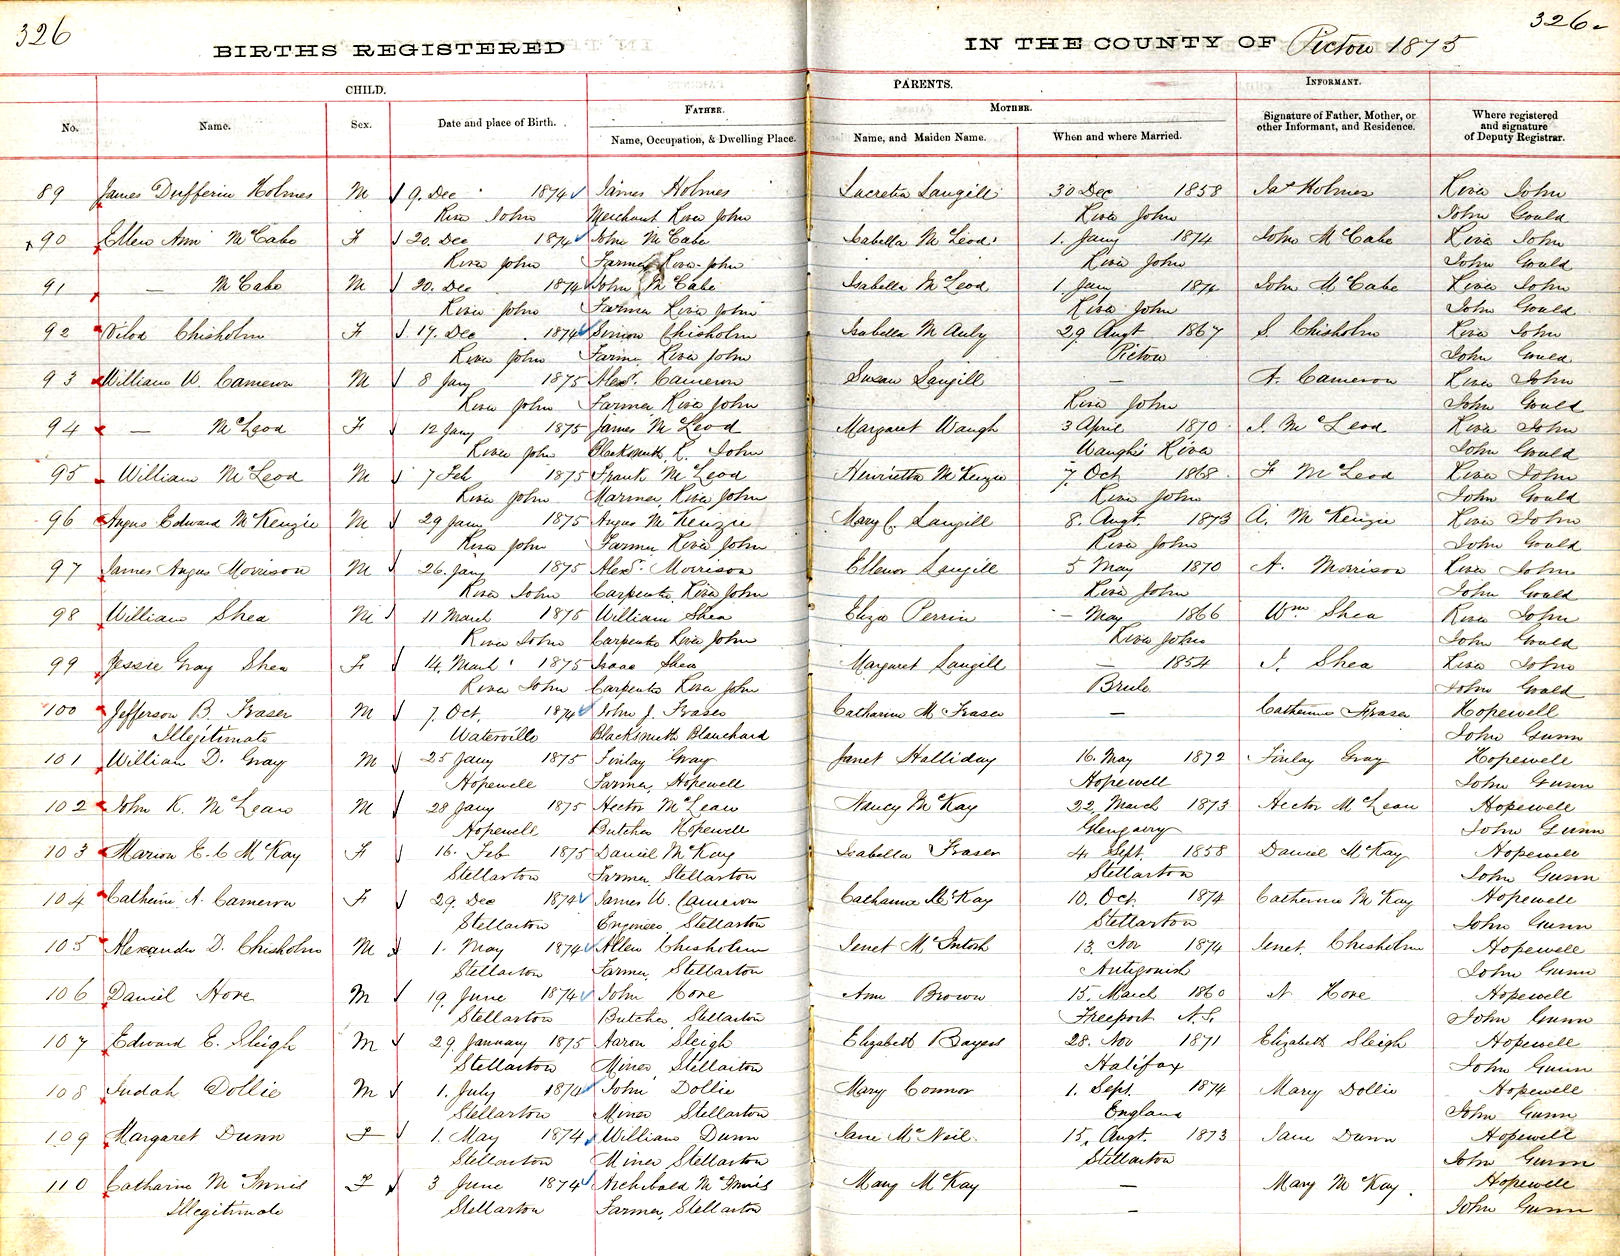 326
326.
BIRTHS REGISTERED IN THE COUNTY OF Pictou 1875
CHILD. PARENTS. INFORMANT.
No. Name. Sex. Date and place of Birth. FATHER. Name, Occupation, & Dwelling Place. MOTHER. Name, and Maiden Name. When and where Married. Signature of Father, Mother, or other Informant, and Residence. Where registered and signature of Deputy Registrar.
89 James Dufferin Holmes M 9. Dec 1874 James Holmes Lucretia Langill 30 Dec 1858 Jas Holmes River John
River John Merchant River John River John John Gould
90 Ellen Ann McCabe F 20. Dec 1874 John McCabe Isabella McLeod 1. Jany 1874 John McCabe River John
River John Farmer River John River John John Gould
91 — McCabe M 20. Dec 1874 John McCabe Isabella McLeod 1 Jany 1874 John McCabe River John
River John Farmer River John River John John Gould
92 Chisholm F 17. Dec 1874 Simon Chisholm Isabella McAuly 29 Augt 1867 S. Chisholm River John
River John Farmer River John Pictou John Gould
93 William W. Cameron M 8 Jany 1875 Alexr. Cameron Susan Langill — A. Cameron River John
River John Farmer River John River John John Gould
94 — McLeod F 12 Jany 1875 James McLeod Margaret Waugh 3 April 1870 J. McLeod River John
River John Blacksmith R. John Waugh's River John Gould
95 William McLeod M 7 Feb 1875 Frank McLeod Henrietta McKenzie 7 Oct 1868 F McLeod River John
River John Mariner River John River John John Gould
96 Angus Edward McKenzie M 29 Jany 1875 Angus McKenzie Mary C. Langill 8. Augt. 1873 A. McKenzie River John
River John Farmer River John River John John Gould
97 James Angus Morrison M 26. Jany 1875 Alexr. Morrison Ellenor Langill 5 May 1870 A. Morrison River John
River John Carpenter River John River John John Gould
98 William Shea M 11 March 1875 William Shea Eliza Perrin — May 1866 Wm Shea River John
River John Carpenter River John River John John Gould
99 Jessie Gray Shea F 14. March 1875 Isaac Shea Margaret Langill — 1854 I. Shea River John
River John Carpenter River John Brule John Gould
100 Jefferson B. Fraser M 7. Oct. 1874 John J. Fraser Catharine M Fraser — Catherine Fraser Hopewell
Illegitimate Waterville Blacksmith Blanchard John Gunn
101 William D. Gray M 25 Jany 1875 Finlay Gray Janet Halliday 16. May 1872 Finlay Gray Hopewell
Hopewell Farmer, Hopewell Hopewell John Gunn
102 John K. McLean M 28 Jany 1875 Hector McLean Nancy McKay 22 March 1873 Hector McLean Hopewell
Hopewell Butcher Hopewell Glengarry John Gunn
103 Marion E. C McKay F 16. Feb 1875 Daniel McKay Isabella Fraser 4. Sept. 1858 Daniel McKay Hopewell
Stellarton Farmer, Stellarton Stellarton John Gunn
104 Catherine A. Cameron F 29. Dec 1874 James W. Cameron Catharine McKay 10. Oct. 1874 Catherine McKay Hopewell
Stellarton Engineer, Stellarton Stellarton John Gunn
105 Alexander D. Chisholm M 1. May 1874 Allen Chisholm Jenet McIntosh 13. Nov 1874 Jenet. Chisholm Hopewell
Stellarton Farmer, Stellarton Antigonish John Gunn
106 Daniel Hore M 19. June 1874 John Hore Ann Brown 15. March 1860 Hore Hopewell
Stellarton Butcher Stellarton Freeport N.S. John Gunn
107 Edward E. Sleigh M 29 January 1875 Aaron Sleigh Elizabeth Bayers 28. Nov 1871 Elizabeth Sleigh Hopewell
Stellarton Miner, Stellarton Halifax John Gunn
108 Judah Dollie M 1. July 1874 John Dollie Mary Connor 1. Sept. 1874 Mary Dollie Hopewell
Stellarton Miner Stellarton England John Gunn
109 Margaret Dunn F 1. May 1874 William Dunn Jane McNeil. 15. Augt. 1873 Jane Dunn Hopewell
Stellarton Miner Stellarton Stellarton John Gunn
110 Catharine McInnis F 3 June 1874 Archibald McInnis Mary McKay — Mary McKay. Hopewell
Illegitimate Stellarton Farmer, Stellarton — John Gunn